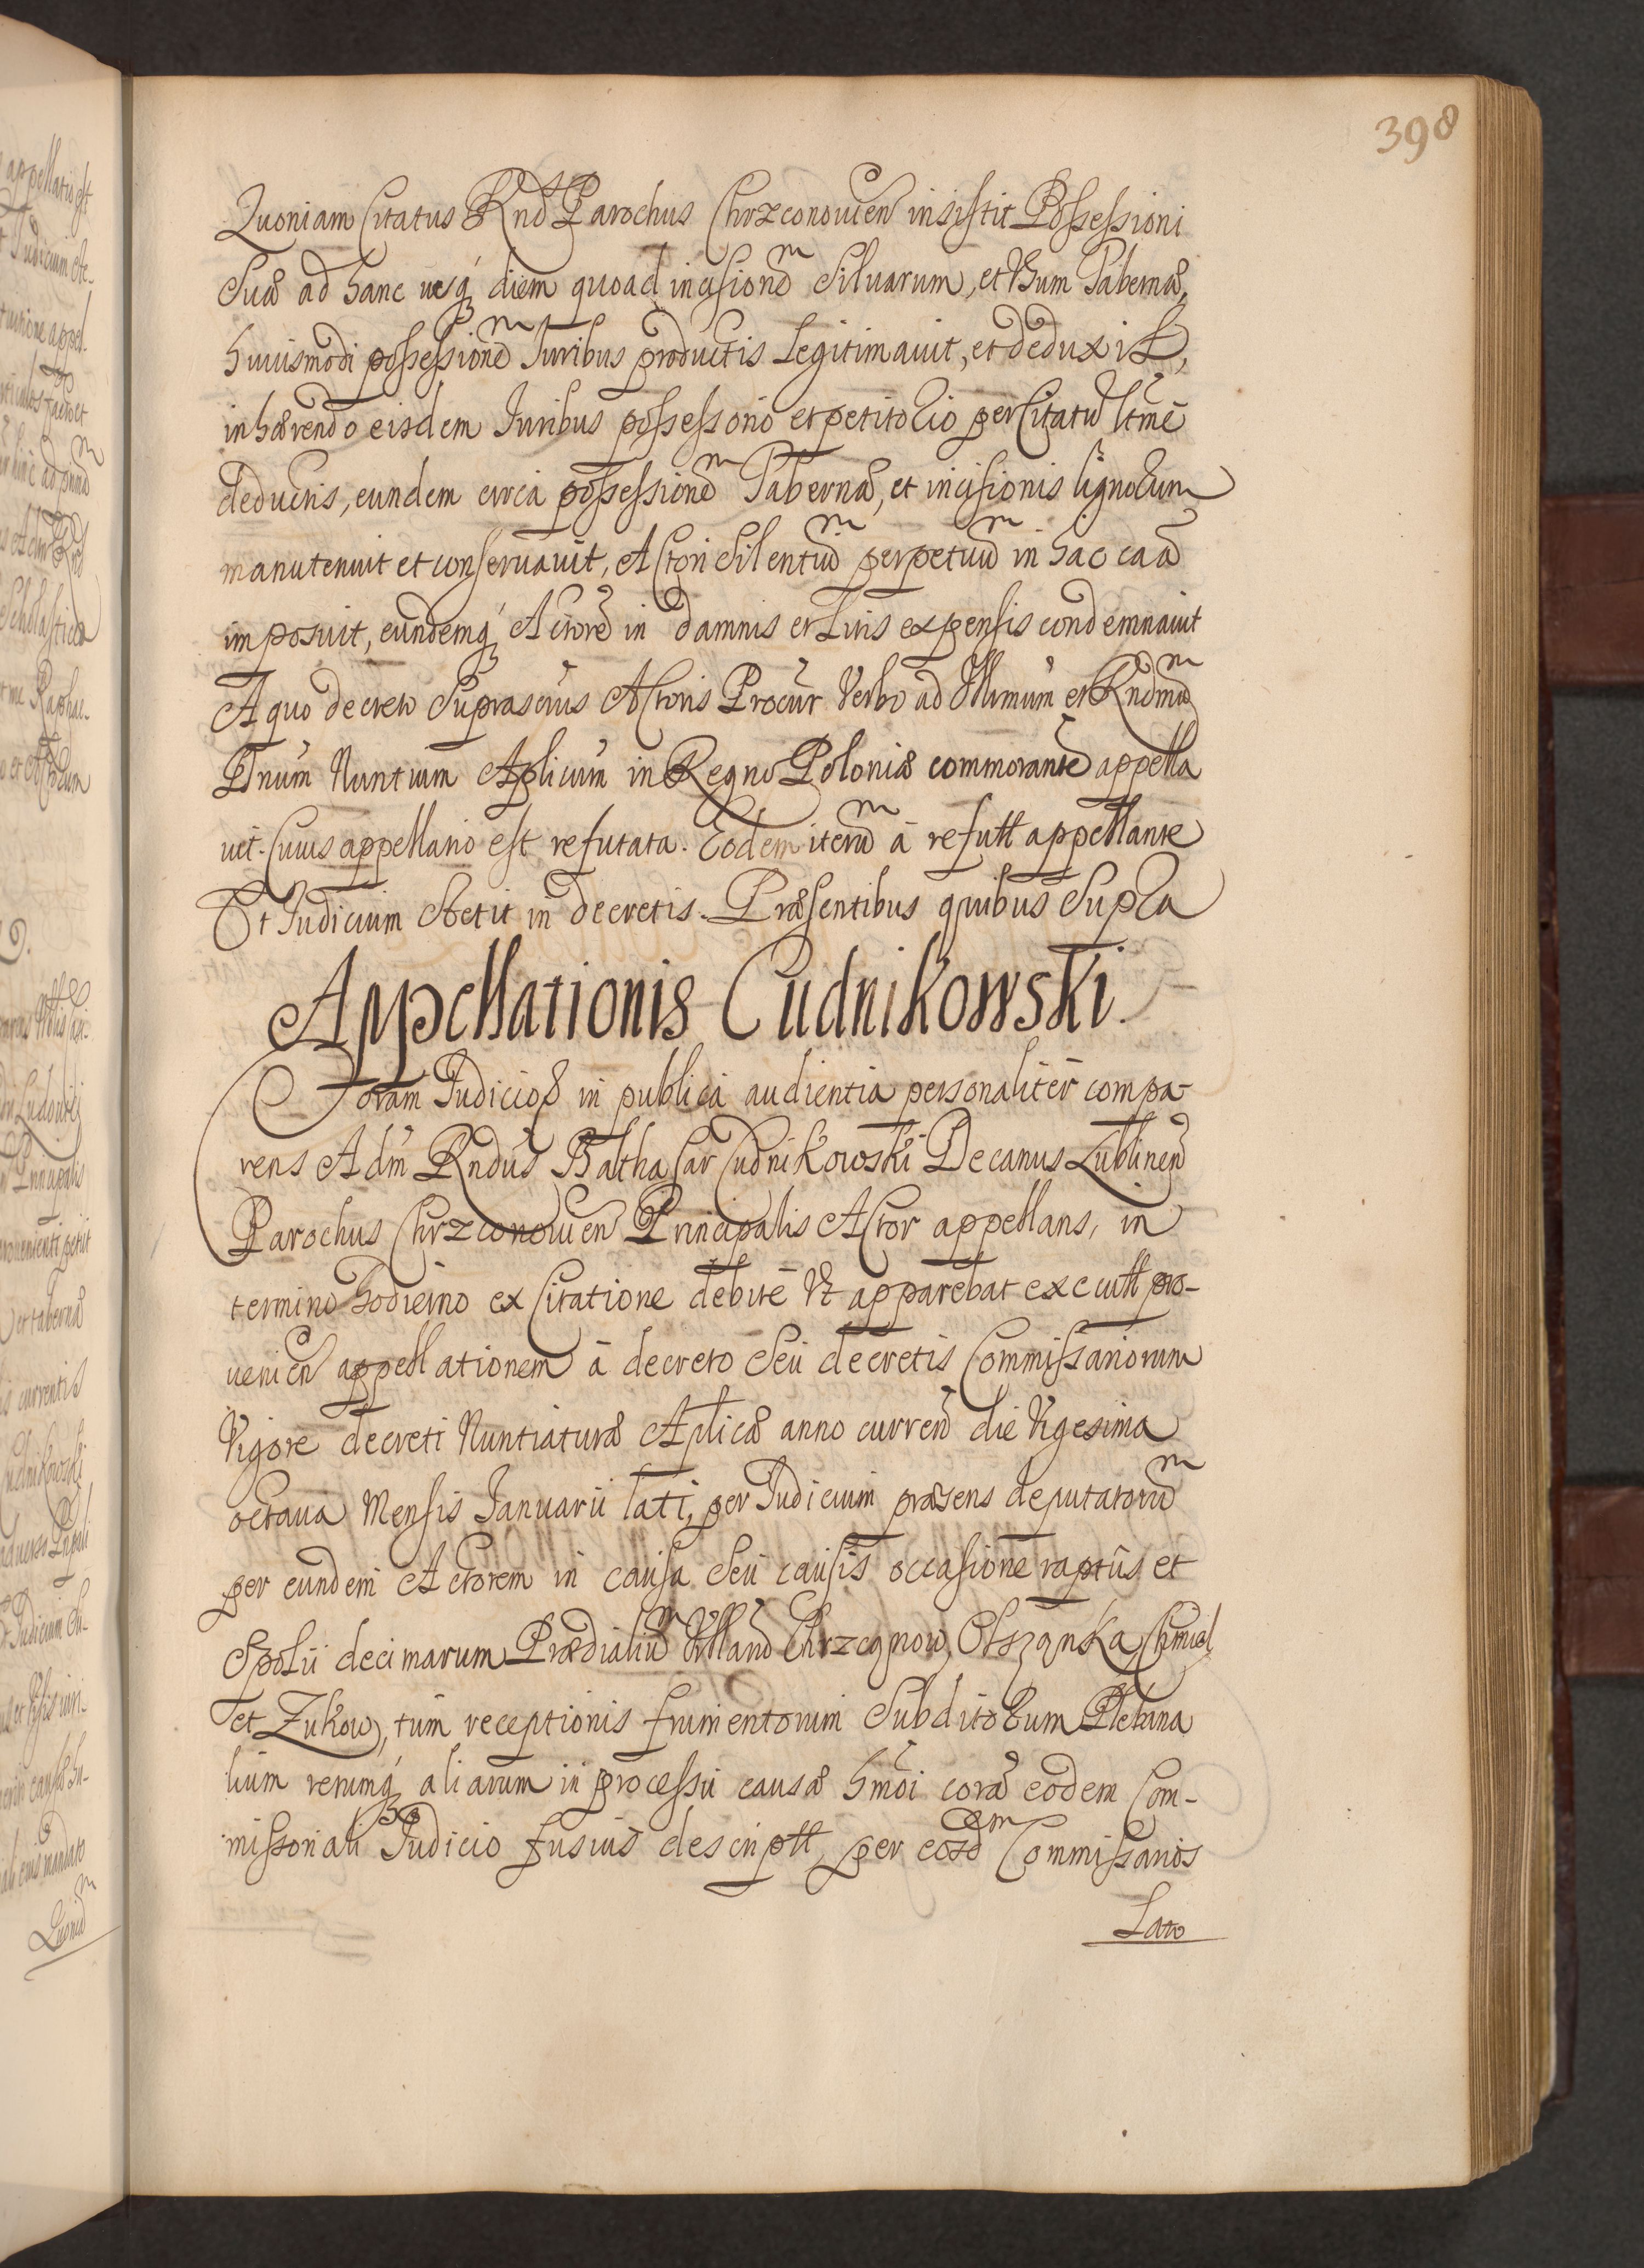 398
Quoniam Citatus Rnds Parochus Chrzconouien insistit Possessioni
Suæ ad hanc usq́ diem quoad incisionem Siluarum, et Usum Tabernæ,
huiusmodi possessionem Iuribus productis Legitimauit, et deduxit,
inhærendo eisdem Iuribus possessorio et petitorio per Citatū ltme
deductis, eundem circa possessionem Tabernæ, et incisionis lignorum
manutenuit et conseruauit, Actori Silentium perpetuum in hac caã
imposuit, eundemq́ Actorē in damnis et Litis expensis condemnauit
A quo decreto Suprascrius Actoris Procur Verbo ad Illmum et Rndmum
Dnum Nuntium Aplicum in Regno Poloniæ commorante appella
uit. Cuius appellatio est refutata. Eodem iterum à refutt appellante
Et Iudicium stetit in decretis. Præsentibus quibus Supra
Appellationis Cudnikowski.
Coram Iudicioq in publica audientia personaliter compa-
rens Adm Rndus Balthasar Cudnikowski Decanus Lublinen
Parochus Chrzconouien Principalis Actor appellans, in
termino hodierno ex Citatione debite Ut apparebat executt pro-
uenien appellationem à decreto Seu decretis Commissariorum
Vigore decreti Nuntiaturæ Aplicæ anno curren die Vigesima
octaua Mensis Ianuarii lati, per Iudicium præsens deputatorum
per eundem Actorem in causa Seu causis occasione raptus et
Spolii decimarum Prædialium Villarū Chrzcąnow, Olsząnka Chmiel
et Zukow, tum receptionis frumentorum Subditorum Plebana
lium rerumq́ aliarum in processu causæ hmoi corã eodem Com-
missoriali Iudicio fusius descriptt, per eosdem Commissarios
Lato